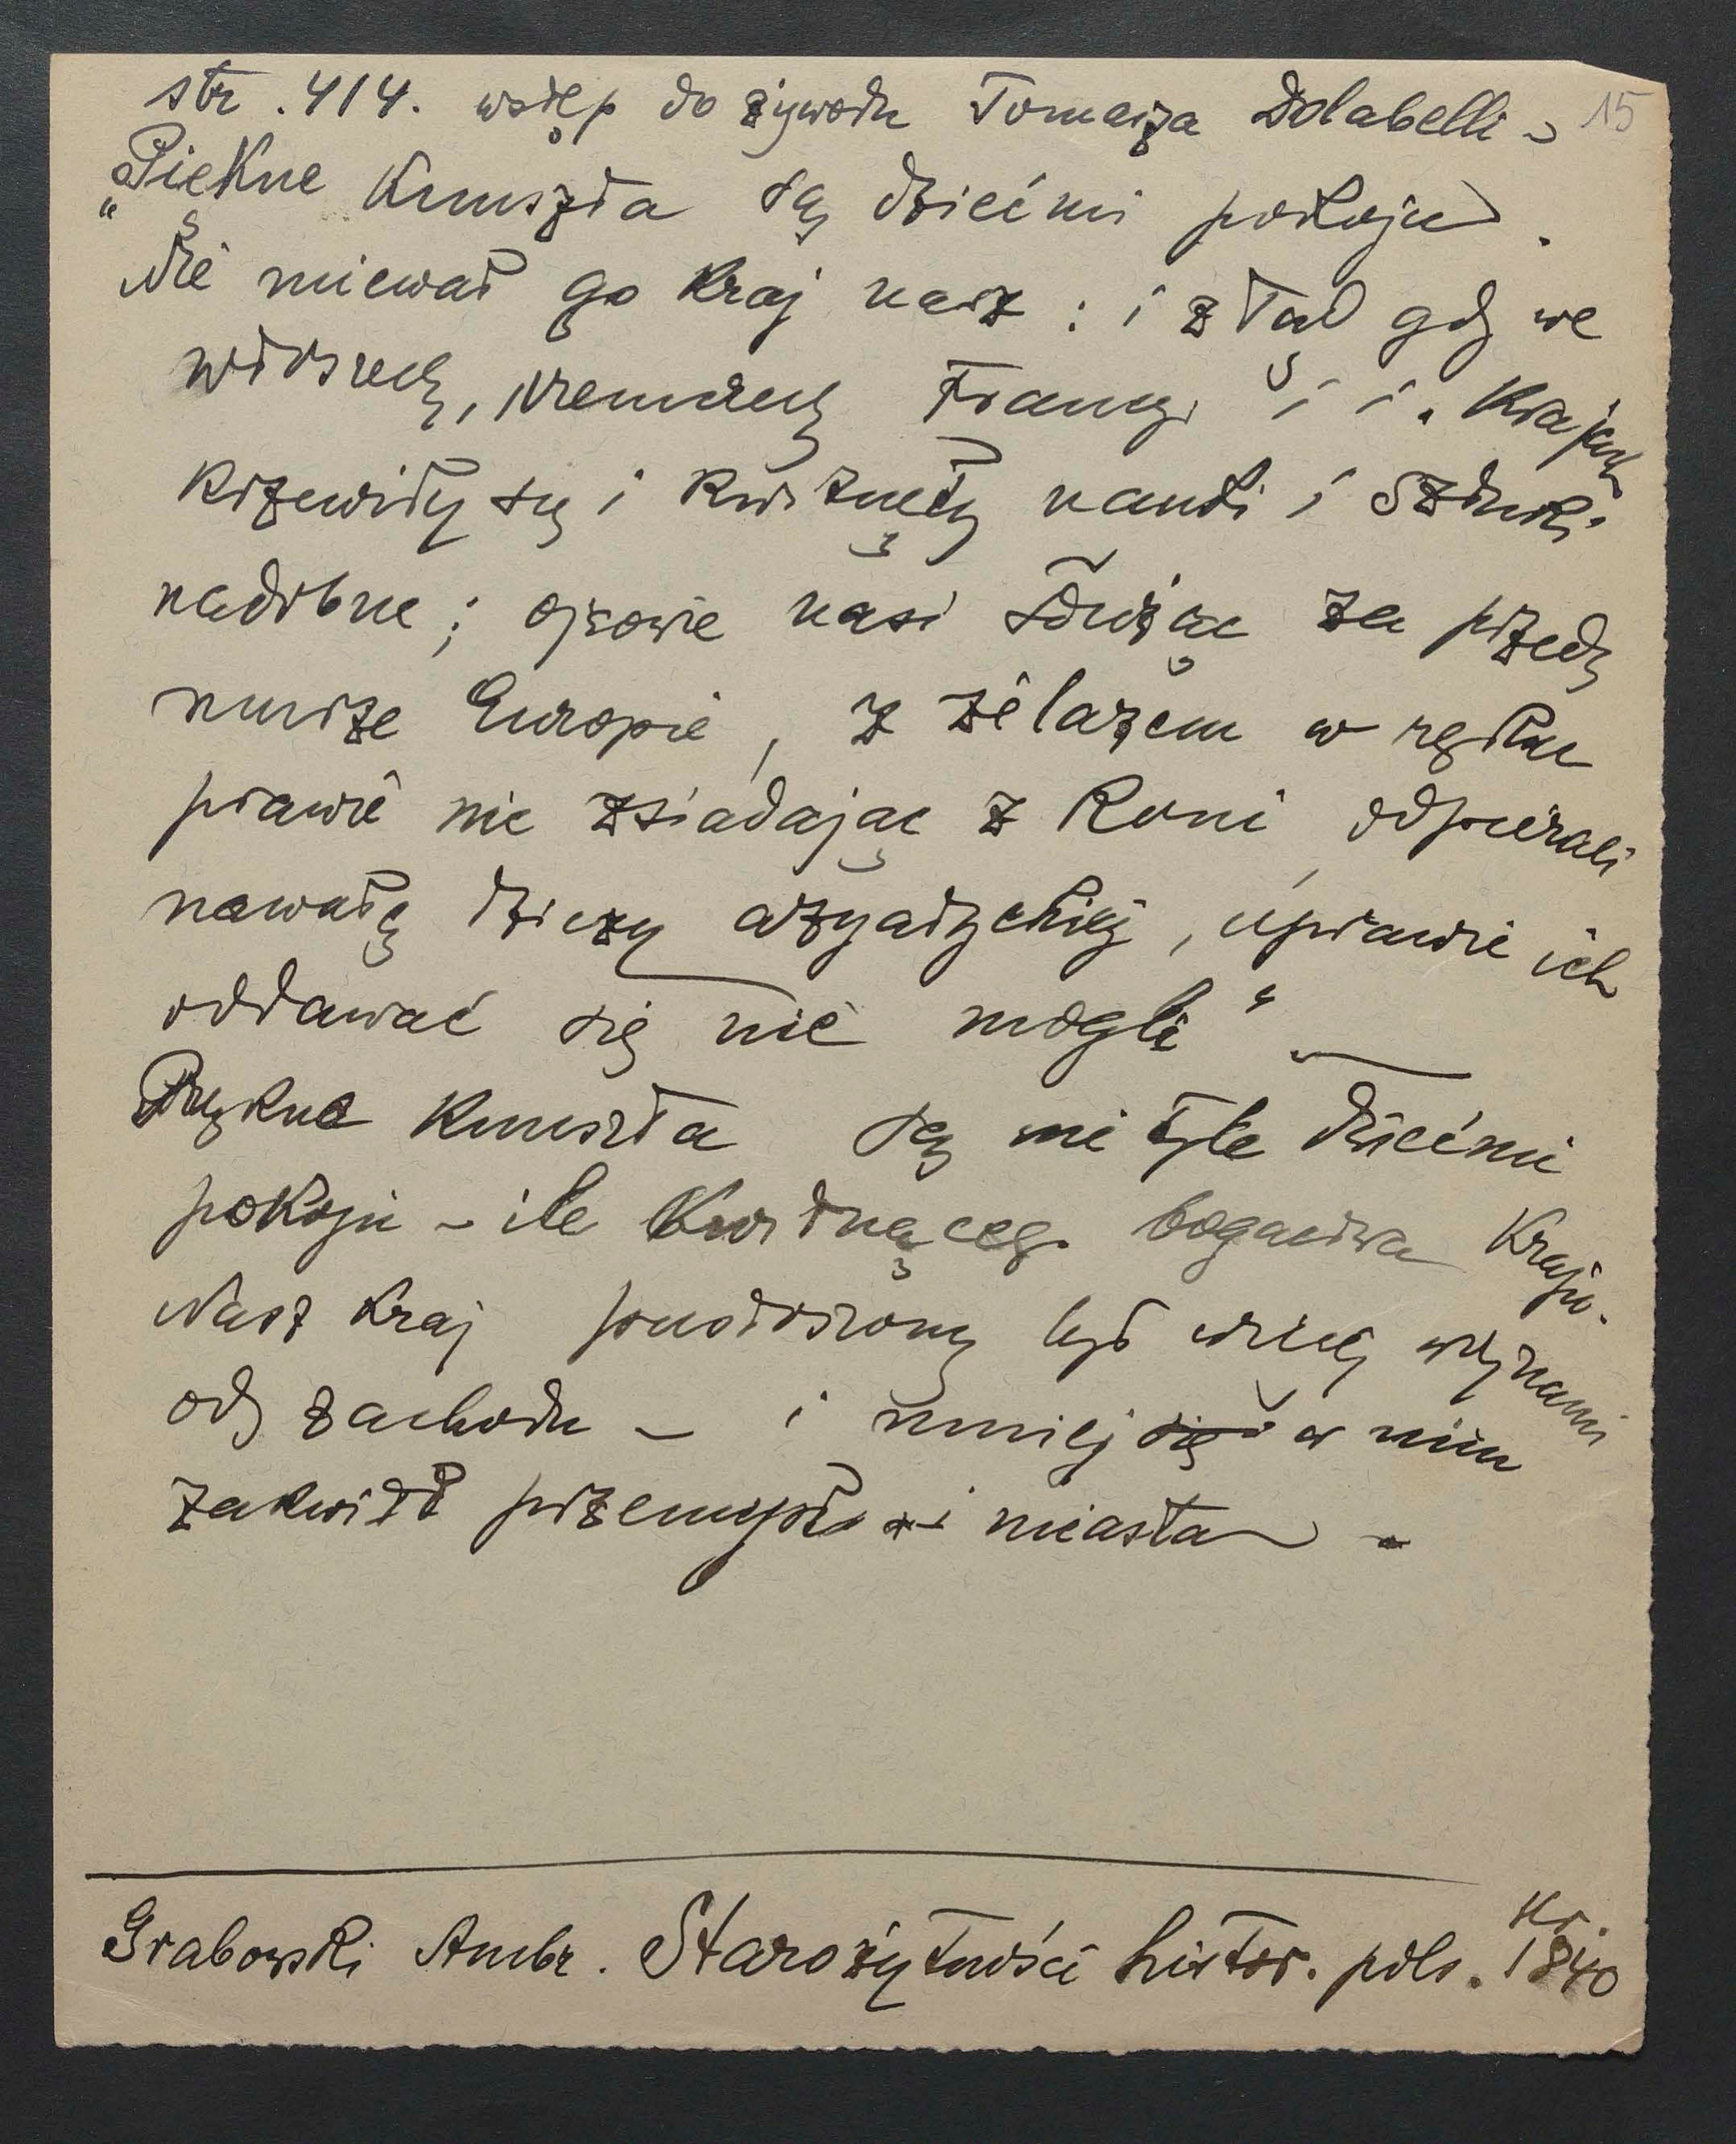 str. 414. wstęp do żywota Tomasza Dolabelli – 15
„Piękne kunszta są dziećmi pokoju.
Nie miewał go kraj nasz : i ztąd gdy we
Włoszech, Niemczech Francyi i i. krajach
krzewiły się i kwitnęły nauki i sztuki
nadobne; ojcowie nasi służąc za przed
murze Europie, z żelazem w ręku
prawie nie zsiadając z koni, odpierali
nawałę dziczy azyatyckiej, uprawie ich
oddawać się nie mogli“ –
Piękne kunszta są nie tyle dziećmi
pokoju – ile kwitnącego bogactwa kraju.
Nasz kraj pustoszony był więcej wojnami
od zachodu – i mniej się w nim
zakwitł przemysł i miasta –
Grabowski Ambr. Starożytności histor. pols. Kr.
1840